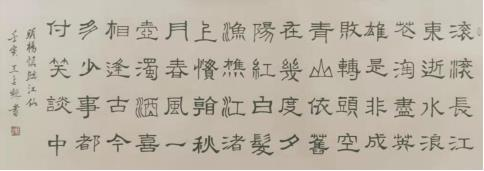 滾滾長江
東逝水浪
花淘盡英
雄是非成
敗轉頭空
青山依舊
在幾度夕
陽紅白髮
漁樵江渚
上慣看秋
月春風一
壺濁酒喜
相逢古今
多少事都
付笑談中
明楊慎臨江仙
壬寅王書